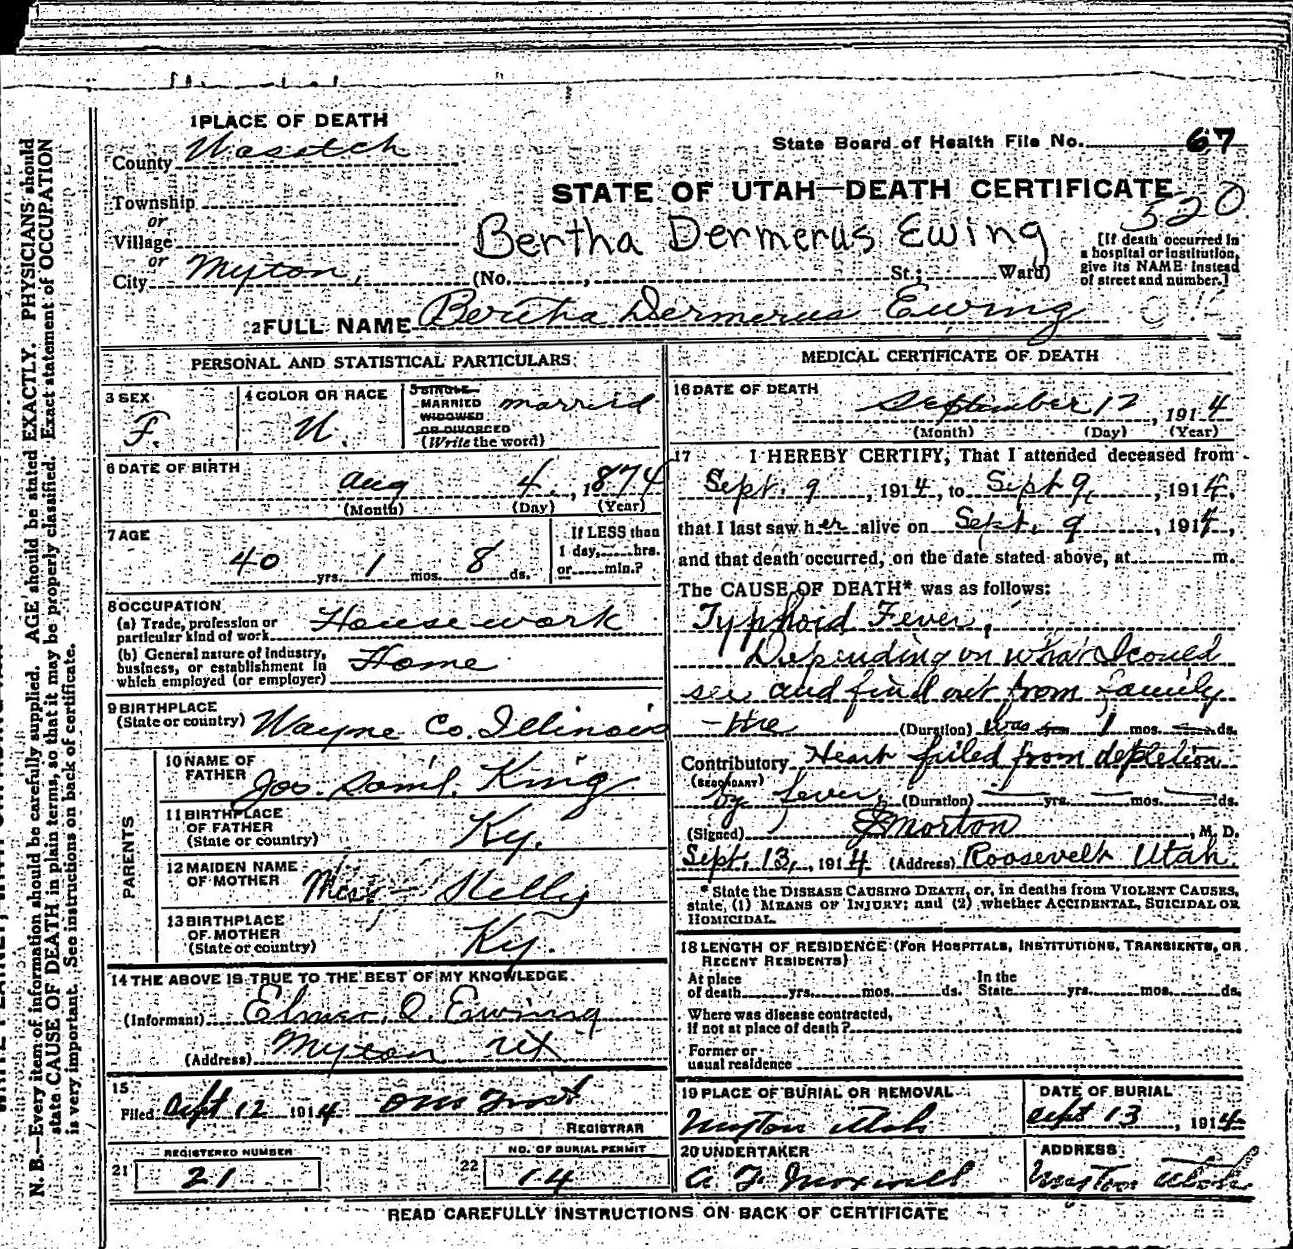 1 PLACE OF DEATH
County Wasatch
State Board of Health File No. 67
STATE OF UTAH—DEATH CERTIFICATE
320
Township
or
Village
or
City Myton,
Bertha Dermerus Ewing
(No. , St.; Ward)
[If death occurred in
a hospital or institution,
give its NAME instead
of street and number.]
2 FULL NAME Bertha Dermerus Ewing
PERSONAL AND STATISTICAL PARTICULARS
3 SEX
F.
4 COLOR OR RACE
W.
5 SINGLE
MARRIED
WIDOWED
OR DIVORCED
(Write the word)
married
6 DATE OF BIRTH
Aug 4, 1874
(Month) (Day) (Year)
7 AGE
40 yrs. 1 mos. 8 ds.
If LESS than
1 day, hrs.
or min.?
8 OCCUPATION
(a) Trade, profession or
particular kind of work Housework
(b) General nature of industry,
business, or establishment in
which employed (or employer) Home
9 BIRTHPLACE
(State or country) Wayne Co. Illinois
PARENTS
10 NAME OF
FATHER Jos. Saml. King
11 BIRTHPLACE
OF FATHER
(State or country) Ky.
12 MAIDEN NAME
OF MOTHER Miss Skelly
13 BIRTHPLACE
OF MOTHER
(State or country) Ky.
14 THE ABOVE IS TRUE TO THE BEST OF MY KNOWLEDGE
(Informant) Elmer O. Ewing
(Address) Myton Ut
15
Filed Sept 12 1914
REGISTRAR
REGISTERED NUMBER
21 21
NO. OF BURIAL PERMIT
22 14
MEDICAL CERTIFICATE OF DEATH
16 DATE OF DEATH
September 12, 1914
(Month) (Day) (Year)
17 I HEREBY CERTIFY, That I attended deceased from
Sept. 9, 1914, to Sept 9, 1914,
that I last saw her alive on Sept. 9, 1914,
and that death occurred, on the date stated above, at m.
The CAUSE OF DEATH* was as follows:
Typhoid Fever,
Depending on what I could
see and find out from family
(Duration) yrs. 1 mos. ds.
Contributory Heart failed from depletion
(SECONDARY)
by fever, (Duration) yrs. mos. ds.
(Signed) J Morton, M. D.
Sept. 13, 1914 (Address) Roosevelt Utah.
* State the DISEASE CAUSING DEATH, or, in deaths from VIOLENT CAUSES,
state, (1) MEANS OF INJURY; and (2) whether ACCIDENTAL, SUICIDAL OR
HOMICIDAL.
18 LENGTH OF RESIDENCE (FOR HOSPITALS, INSTITUTIONS, TRANSIENTS, OR
RECENT RESIDENTS)
At place
of death yrs. mos. ds. In the
State yrs. mos. ds.
Where was disease contracted,
if not at place of death?
Former or
usual residence
19 PLACE OF BURIAL OR REMOVAL
Myton Utah
DATE OF BURIAL
Sept 13, 1914
20 UNDERTAKER
A F Maxwell
ADDRESS
Myton Utah
READ CAREFULLY INSTRUCTIONS ON BACK OF CERTIFICATE
N. B.—Every item of information should be carefully supplied. AGE should be stated EXACTLY. PHYSICIANS should
state CAUSE OF DEATH in plain terms, so that it may be properly classified. Exact statement of OCCUPATION
is very important. See instructions on back of certificate.